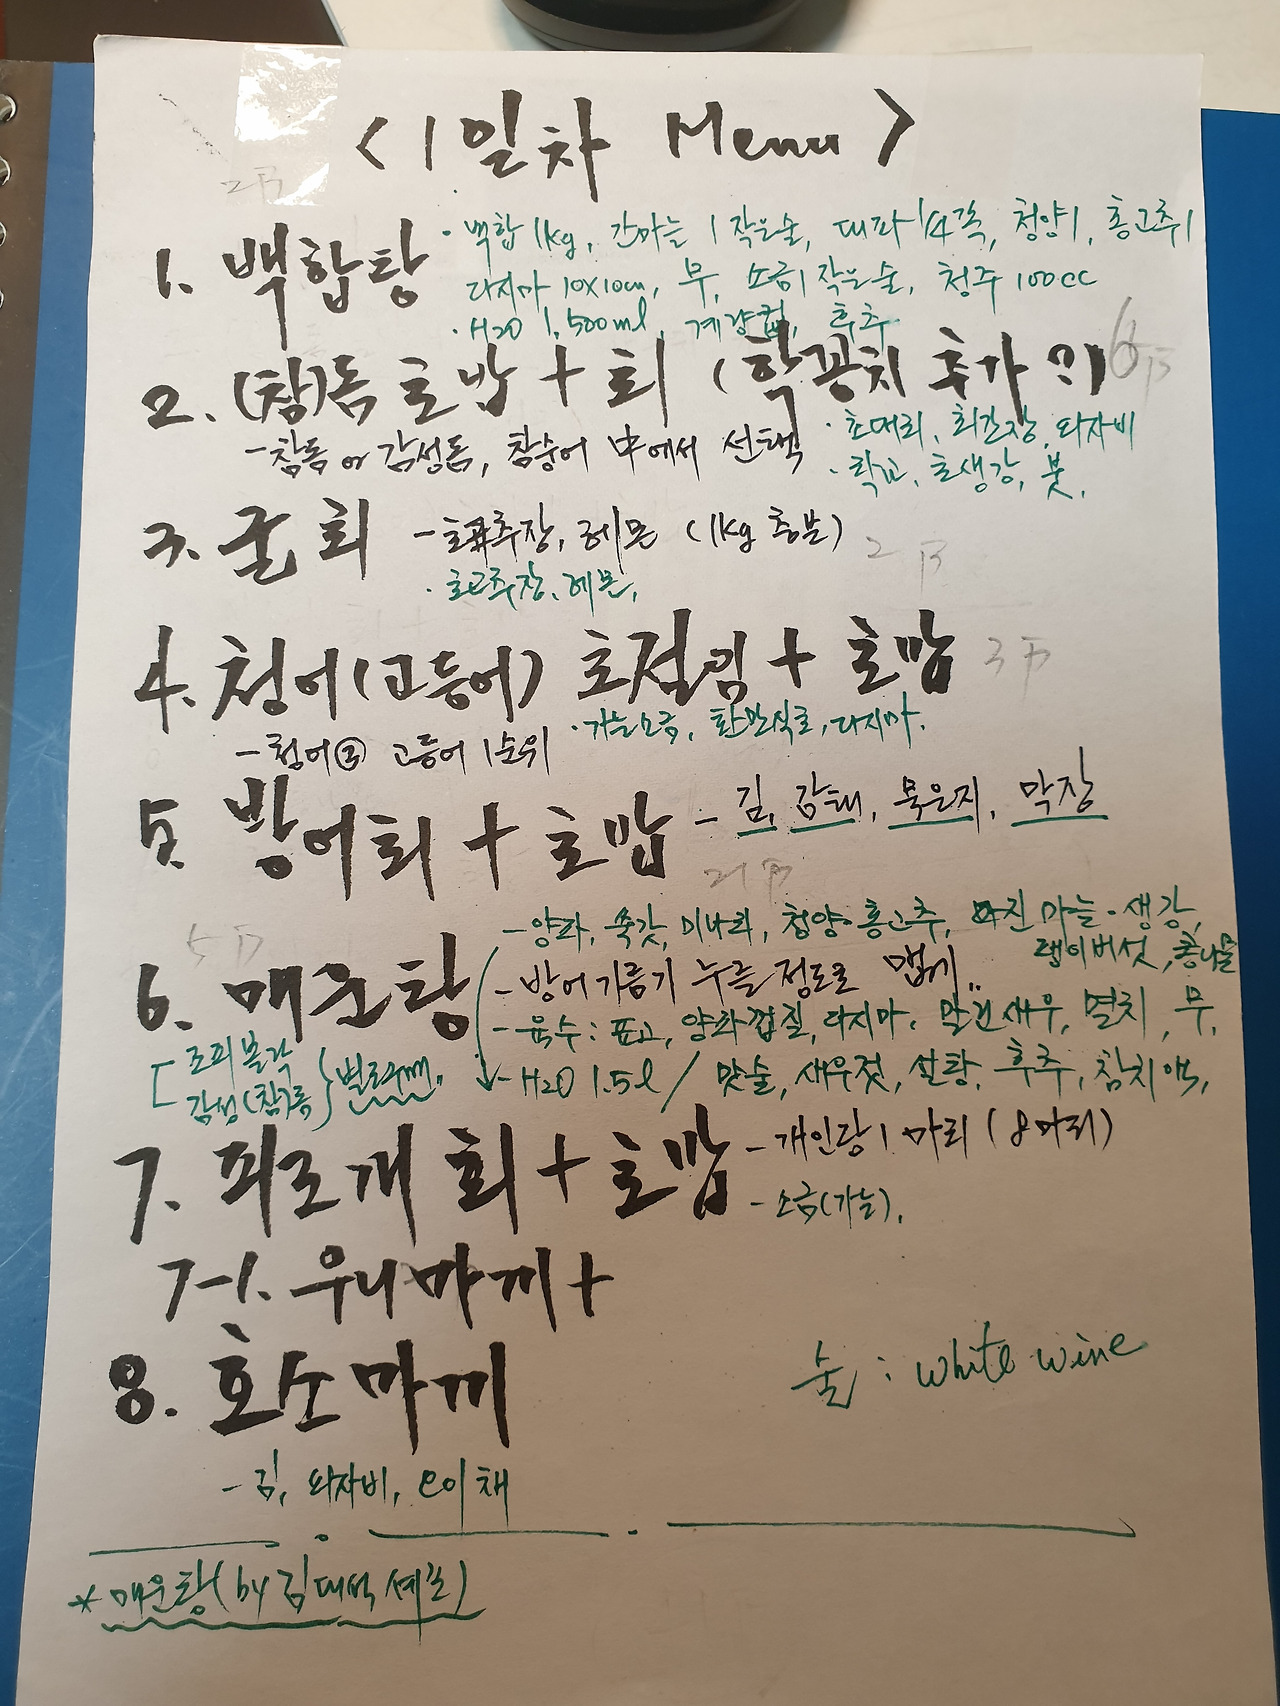 <1일차 Menu>
1. 백합탕
· 백합 1kg, 간마늘 1 작은술, 대파 1/4쪽, 청양1, 홍고추1
다시마 10x10cm, 무, 소금1 작은술, 청주 100cc
· H2O 1,500ml, 계량컵, 후추
2. (참)돔 초밥 + 회 (학꽁치 추가?)
- 참돔 or 감성돔, 참숭어 中에서 선택
· 초대리, 회간장, 와사비
· 락교, 초생강, 붓,
3. 굴회
- 초고추장, 레몬 (1kg 충분)
· 초고추장, 레몬,
4. 청어(고등어) 초절임 + 초밥
- 청어③ 고등어 1순위
· 가는소금, 환만식초, 다시마.
5. 방어회 + 초밥 - 김, 감태, 묵은지, 막장
6. 매운탕
- 양파, 쑥갓, 미나리, 청양·홍고추, 다진 마늘·생강,
팽이버섯, 콩나물
- 방어기름기 누를 정도로 맵게..
- 육수: 표고, 양파껍질, 다시마, 말린새우, 멸치, 무,
- H2O 1.5l / 맛술, 새우젓, 설탕, 후추, 참치액,
[조피볼락
감성(참)돔} 별로구매.
7. 피조개 회 + 초밥
- 개인당 1마리 (8마리)
- 소금(가는).
7-1. 우니마끼+
8. 호소마끼
술: white wine
- 김, 와사비, 오이채
* 매운탕(by 김대석 셰프)